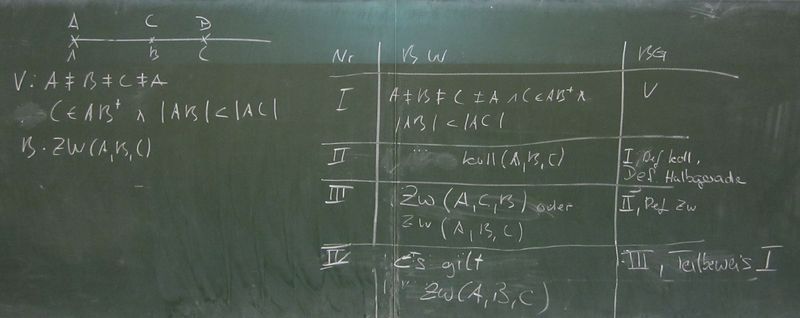 A C D
A B C
V: A ≠ B ≠ C ≠ A
C ∈ AB⁺ ∧ |AB| < |AC|
B: ZW(A,B,C)
Nr BW BG
I A ≠ B ≠ C ≠ A ∧ C ∈ AB⁺ ∧ V
|AB| < |AC|
II ... koll(A,B,C) I, Def koll,
Def Halbgerade
III Zw(A,C,B) oder II, Def Zw
Zw(A,B,C)
IV Es gilt III, Teilbeweis I
Zw(A,B,C)